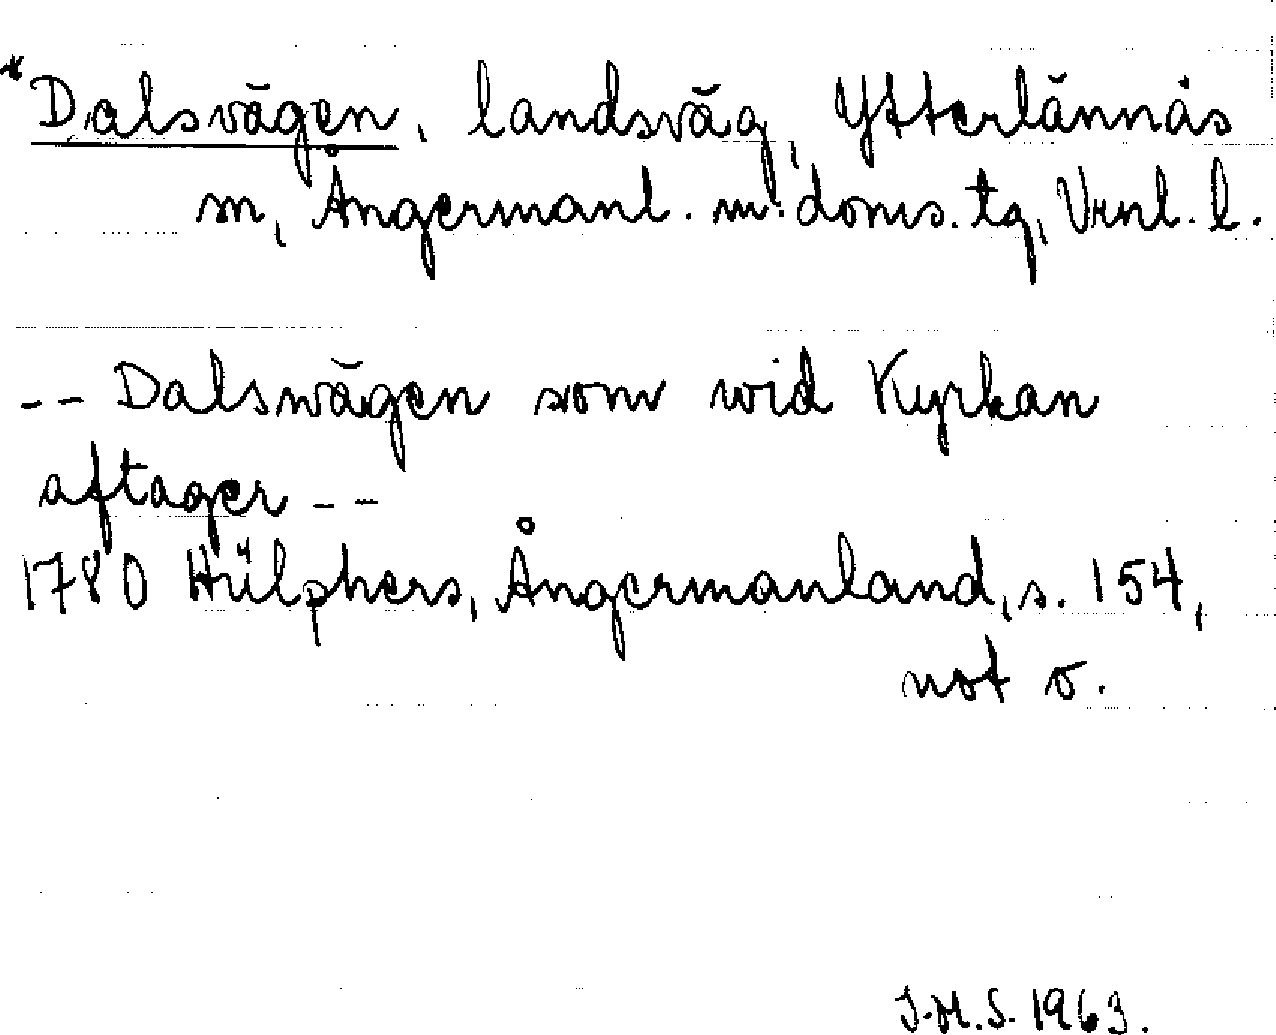 *Dalsvägen, landsväg, Ytterlännäs
sn, Ångermanl. m:doms. tg, Vrnl. l.
-- Dalswägen som wid Kyrkan
aftager --
1780 Hülphers, Ångermanland, s. 154,
not o.
J.M.S. 1963.